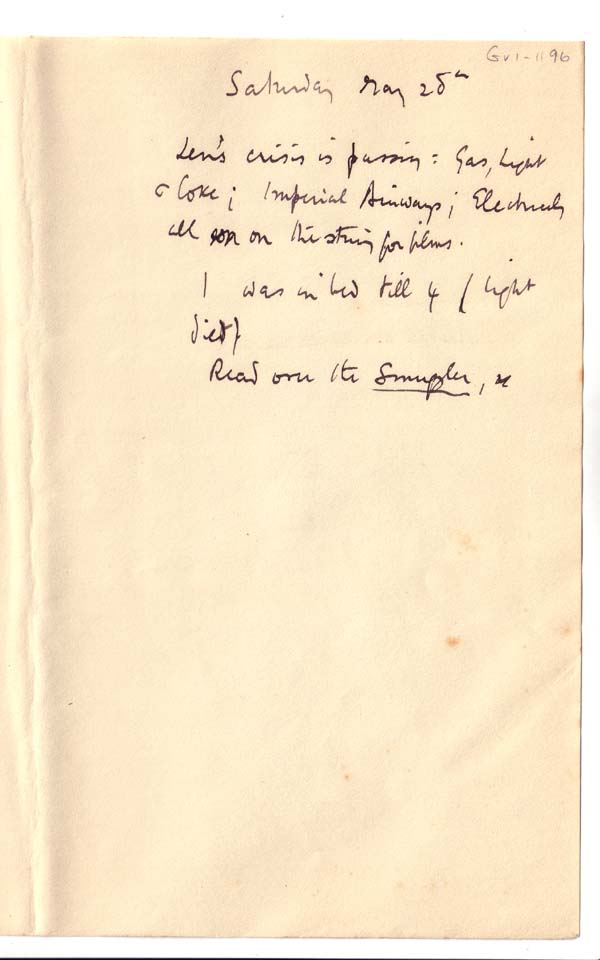 GVI-1196
Saturday May 28th
Len's crisis is passing: Gas, Light
& Coke; Imperial Airways; Electricity
all on on the string for films.
I was in bed till 4 (light
diet)
Read over the Smuggler,